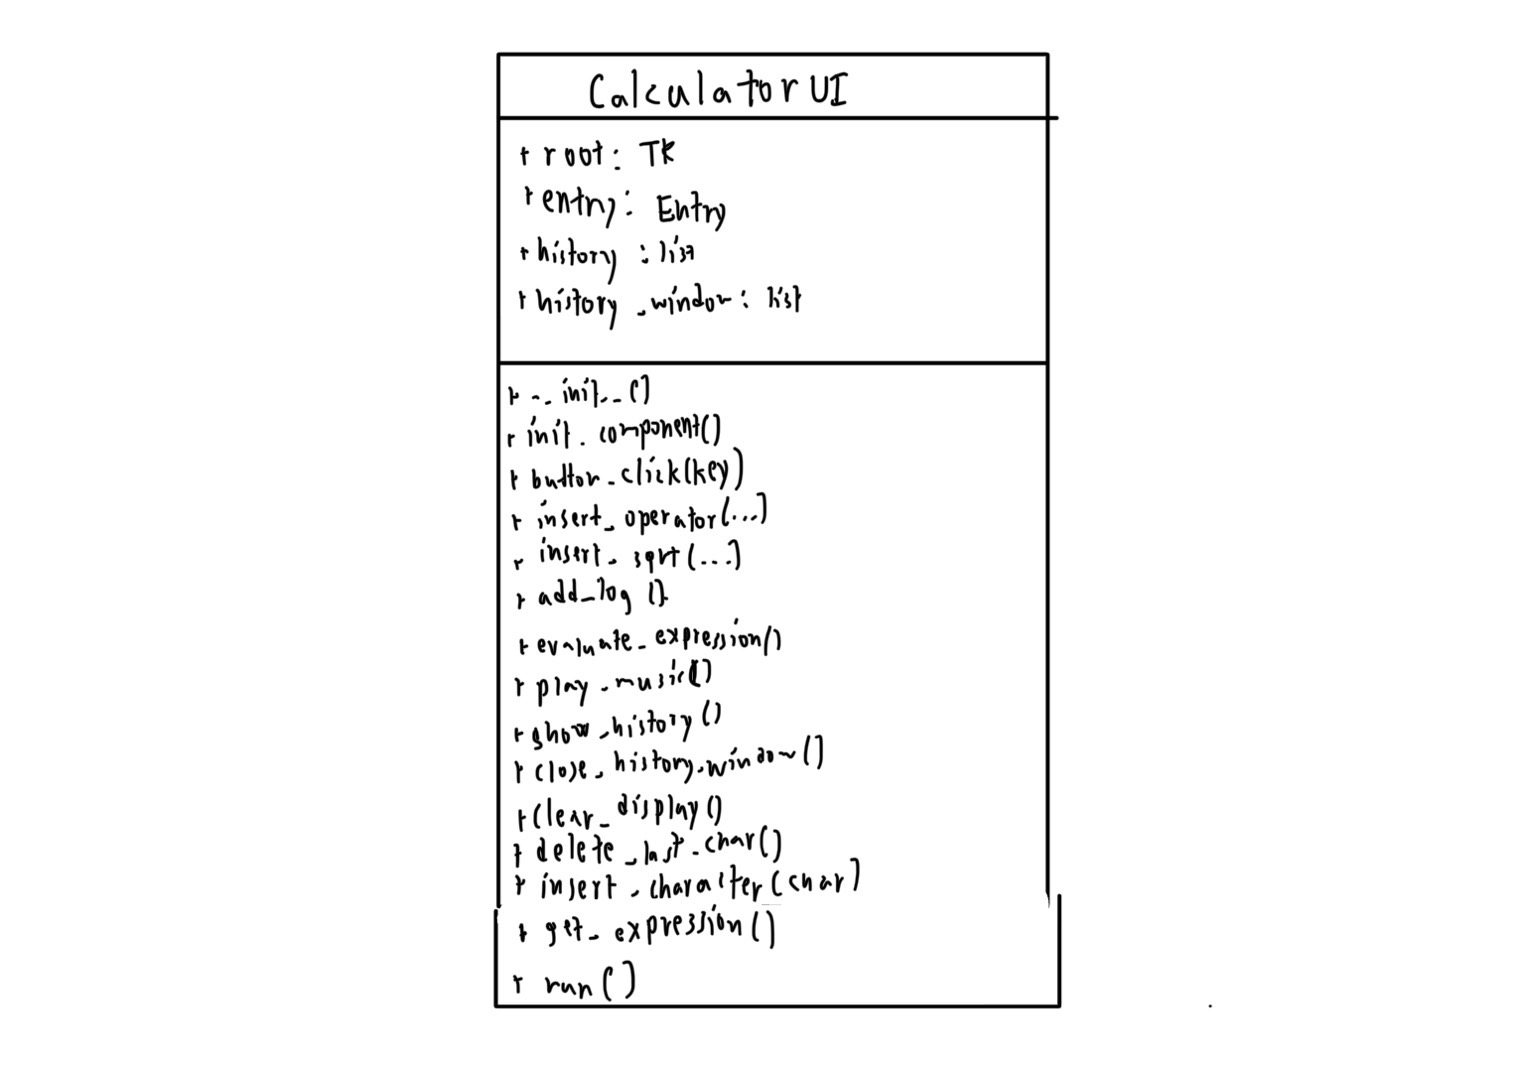 CalculatorUI
+ root: TK
+ entry: Entry
+ history : list
+ history_window: list
+ __init__()
+ init_component()
+ button_click(key)
+ insert_operator(...)
+ insert_sqrt(...)
+ add_log()
+ evaluate_expression()
+ play_music()
+ show_history()
+ close_history_window()
+ clear_display()
+ delete_last_char()
+ insert_character(char)
+ get_expression()
+ run()